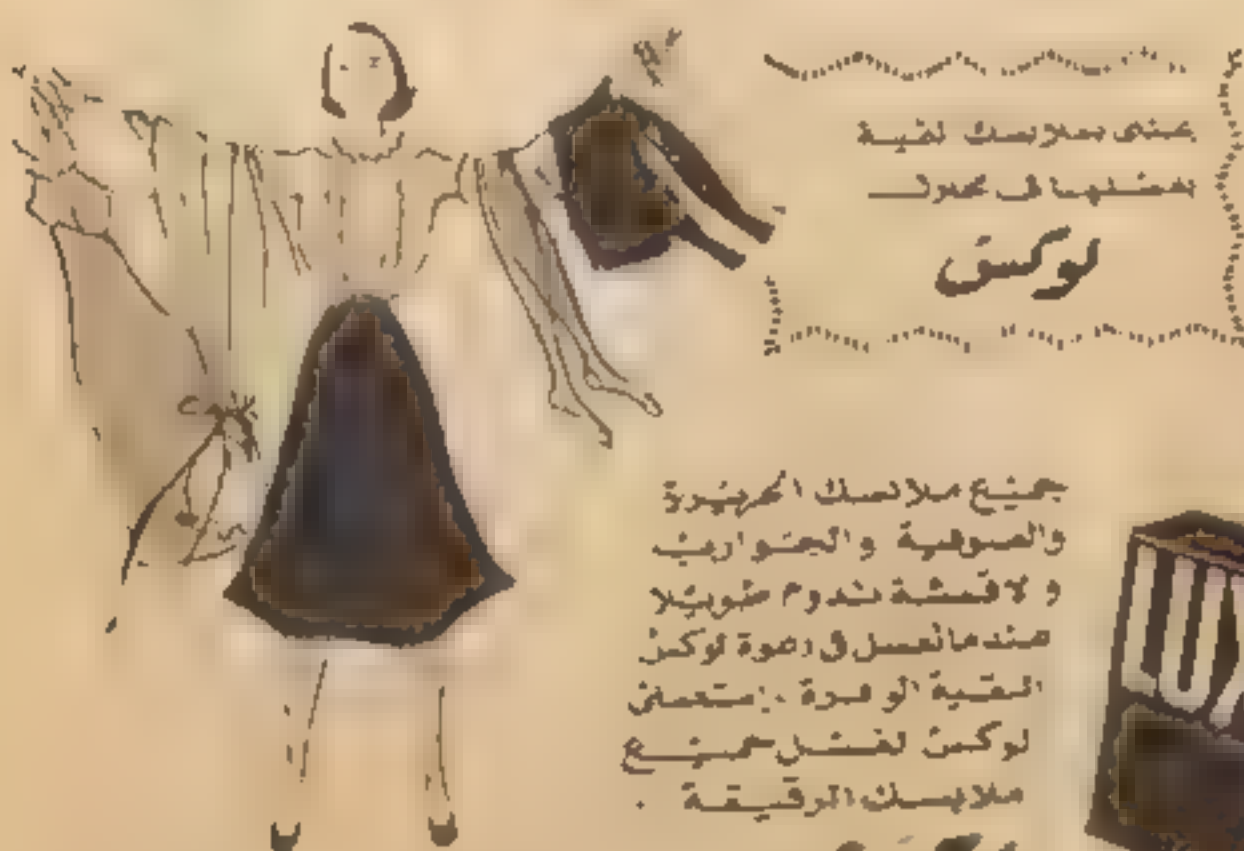 بملابسك
بغسلها في محلول
لوكس
جميع ملابسك الحريرية
والصوفية والجوارب
والاقمشة تدوم طويلا
عندما تغسل في رغوة لوكس
النقية الوفيرة
لوكس لغسل جميع
ملابسك الرقيقة .